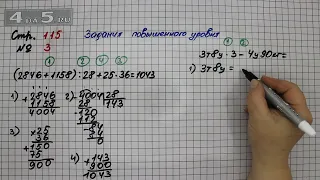 Стр. 115 Задания повышенного уровня
№ 3
① ③ ④ ②
(2846+1158):28+25·36=1043
1) +2846
1158
4004
2) -4004 | 28
28 | 143
-120
112
-84
84
0
3) ×25
36
+150
75
900
4) +143
900
1043
① ②
3т8ц·3-4ц90кг=
1) 3т8ц=